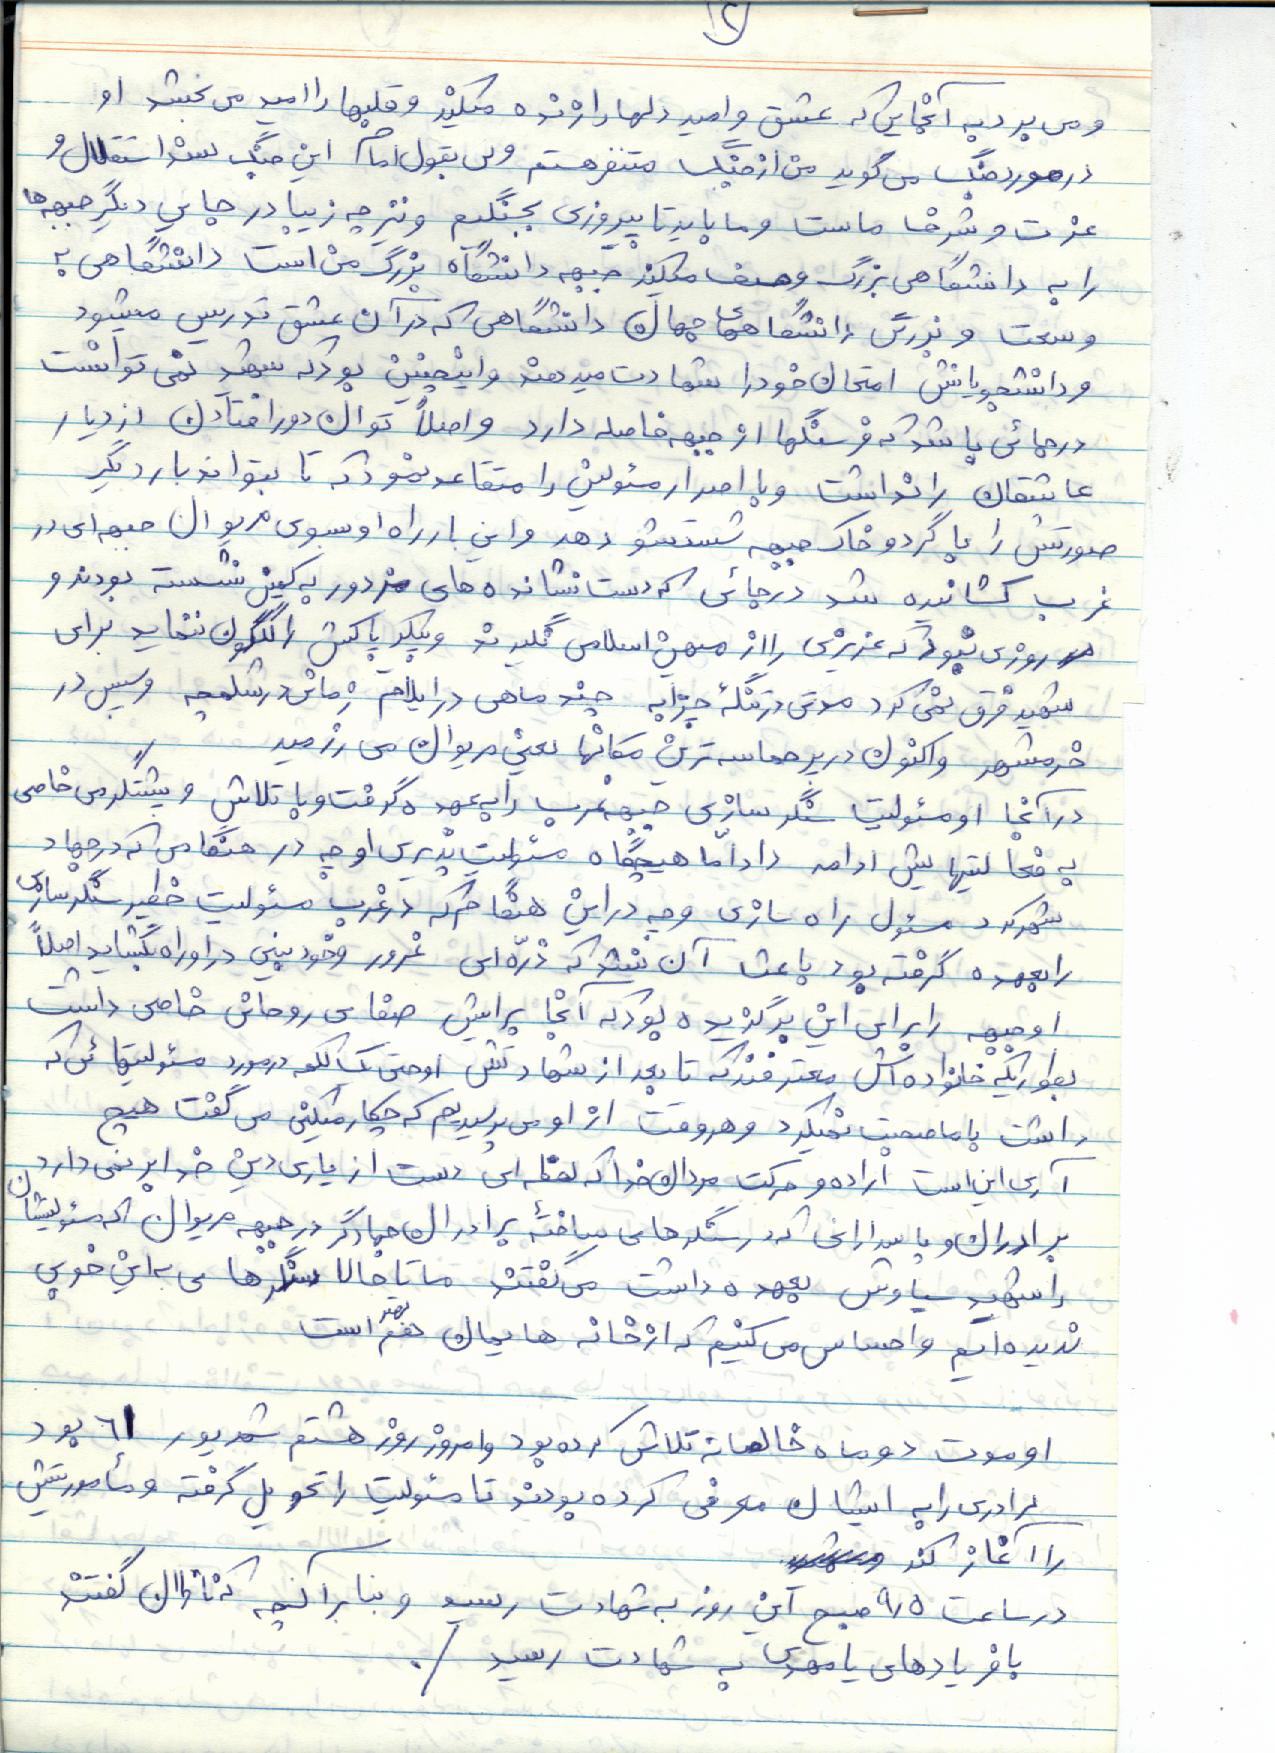 ۲
و می پرد به آنجایی که عشق و امید دلها را زنده میکند و قلبها را امید می بخشد او
درمورد جنگ می گوید من از جنگ متنفر هستم ولی بقول امام این جنگ سند استقلال و
عزت و شرف ماست و ما باید تا پیروزی بجنگیم و نیز چه زیبا در جایی دیگر جبهه ها
را به دانشگاهی بزرگ وصف میکند جبهه دانشگاه بزرگ من است دانشگاهی به
وسعت و بزرگی دانشگاههای جهان دانشگاهی که در آن عشق تدریس میشود
و دانشجویانش امتحان خود را شهادت میدهند و اینچنین بود که شهید نمی توانست
درجائی باشد که فرسنگها از جبهه فاصله دارد و اصلاً توان دور افتادن از دیار
عاشقان را نداشت و با اصرار مسئولین را متقاعد نمود که تا بتواند بار دیگر
صورتش را با گرد و خاک جبهه شستشو دهد و این بار راه او بسوی مریوان جبهه ای در
غرب کشانیده شد درجائی که دست نشانده های مزدور به کمین نشسته بودند و
روزی نبود که عزیزی را از میهن اسلامی نگیرند و پیکر پاکش را گلگون ننماید برای
شهید فرق نمی کرد مدتی در تنگۀ چزابه چند ماهی در ایلام زمانی در شلمچه و سپس در
خرمشهر و اکنون در پر حماسه ترین مکانها یعنی مریوان می رزمید
در آنجا او مسئولیت سنگر سازی جبهه غرب را به عهده گرفت و با تلاش و پشتگرمی خاصی
به فعالیتهایش ادامه داد امّا هیچگاه مسئولیت پذیری او چه در هنگامی که در جهاد
شهرکرد مسئول راه سازی و چه در این هنگام که در غرب مسئولیت خطیر سنگرسازی
را بعهده گرفته بود باعث آن نشد که ذرّه ای غرور و خودبینی در او راه بگشاید اصلاً
او جبهه را برای این برگزیده بود که آنجا برایش صفایی روحانی خاصی داشت
بطوریکه خانواده اش معترفند که تا بعد از شهادتش او حتی یک کلمه در مورد مسئولیتهائی که
داشت با ما صحبت نمیکرد و هر وقت از او می پرسیدیم که چکار میکنی می گفت هیچ
آری این است اراده و حرکت مردان خدا که لحظه ای دست از یاری دین خدا بر نمی دارد
برادران و پاسدارانی که در سنگرهایی ساختۀ برادران جهادگر در جبهه مریوان که مسئولیتشان
را شهید سیاوش بعهده داشت می گفتند ما تا حالا سنگرهایی به این خوبی
ندیده ایم و احساس می کنیم که از خانه هایمان هم بهتر است
او مدت دو ماه خالصانه تلاش کرده بود و امروز روز هشتم شهریور ٦١ بود
برادری را به ایشان معرفی کرده بودند تا مسئولیت را تحویل گرفته و مأموریتش
را آغاز کند
در ساعت ۹/۵ صبح این روز به شهادت رسید و بنا بر آنچه که ناظران گفتند
با فریادهای یا مهدی به شهادت رسید /.